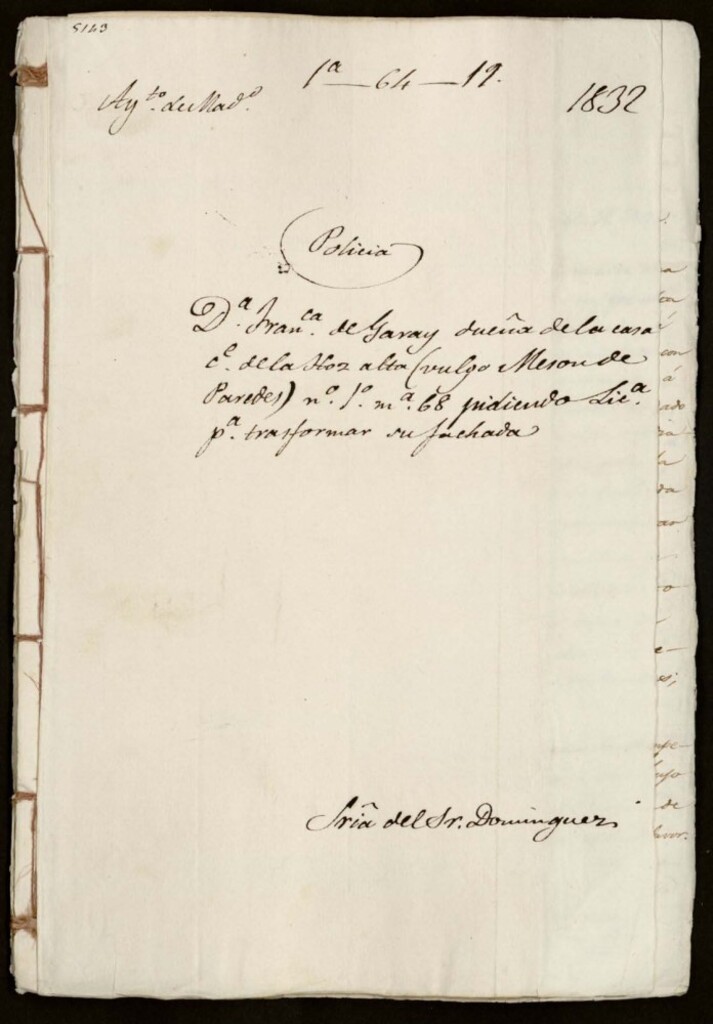 5143
1ª — 64 — 19.
Ay.to de Mad.d
1832
Policia
D.ª Fran.ca de Garay dueña de la casa
c.e de la Hoz alta (vulgo Meson de
Paredes) n.º 1.º m.ª 68 pidiendo Lic.ª
p.ª trasformar su fachada
Sria del Sr. Dominguez